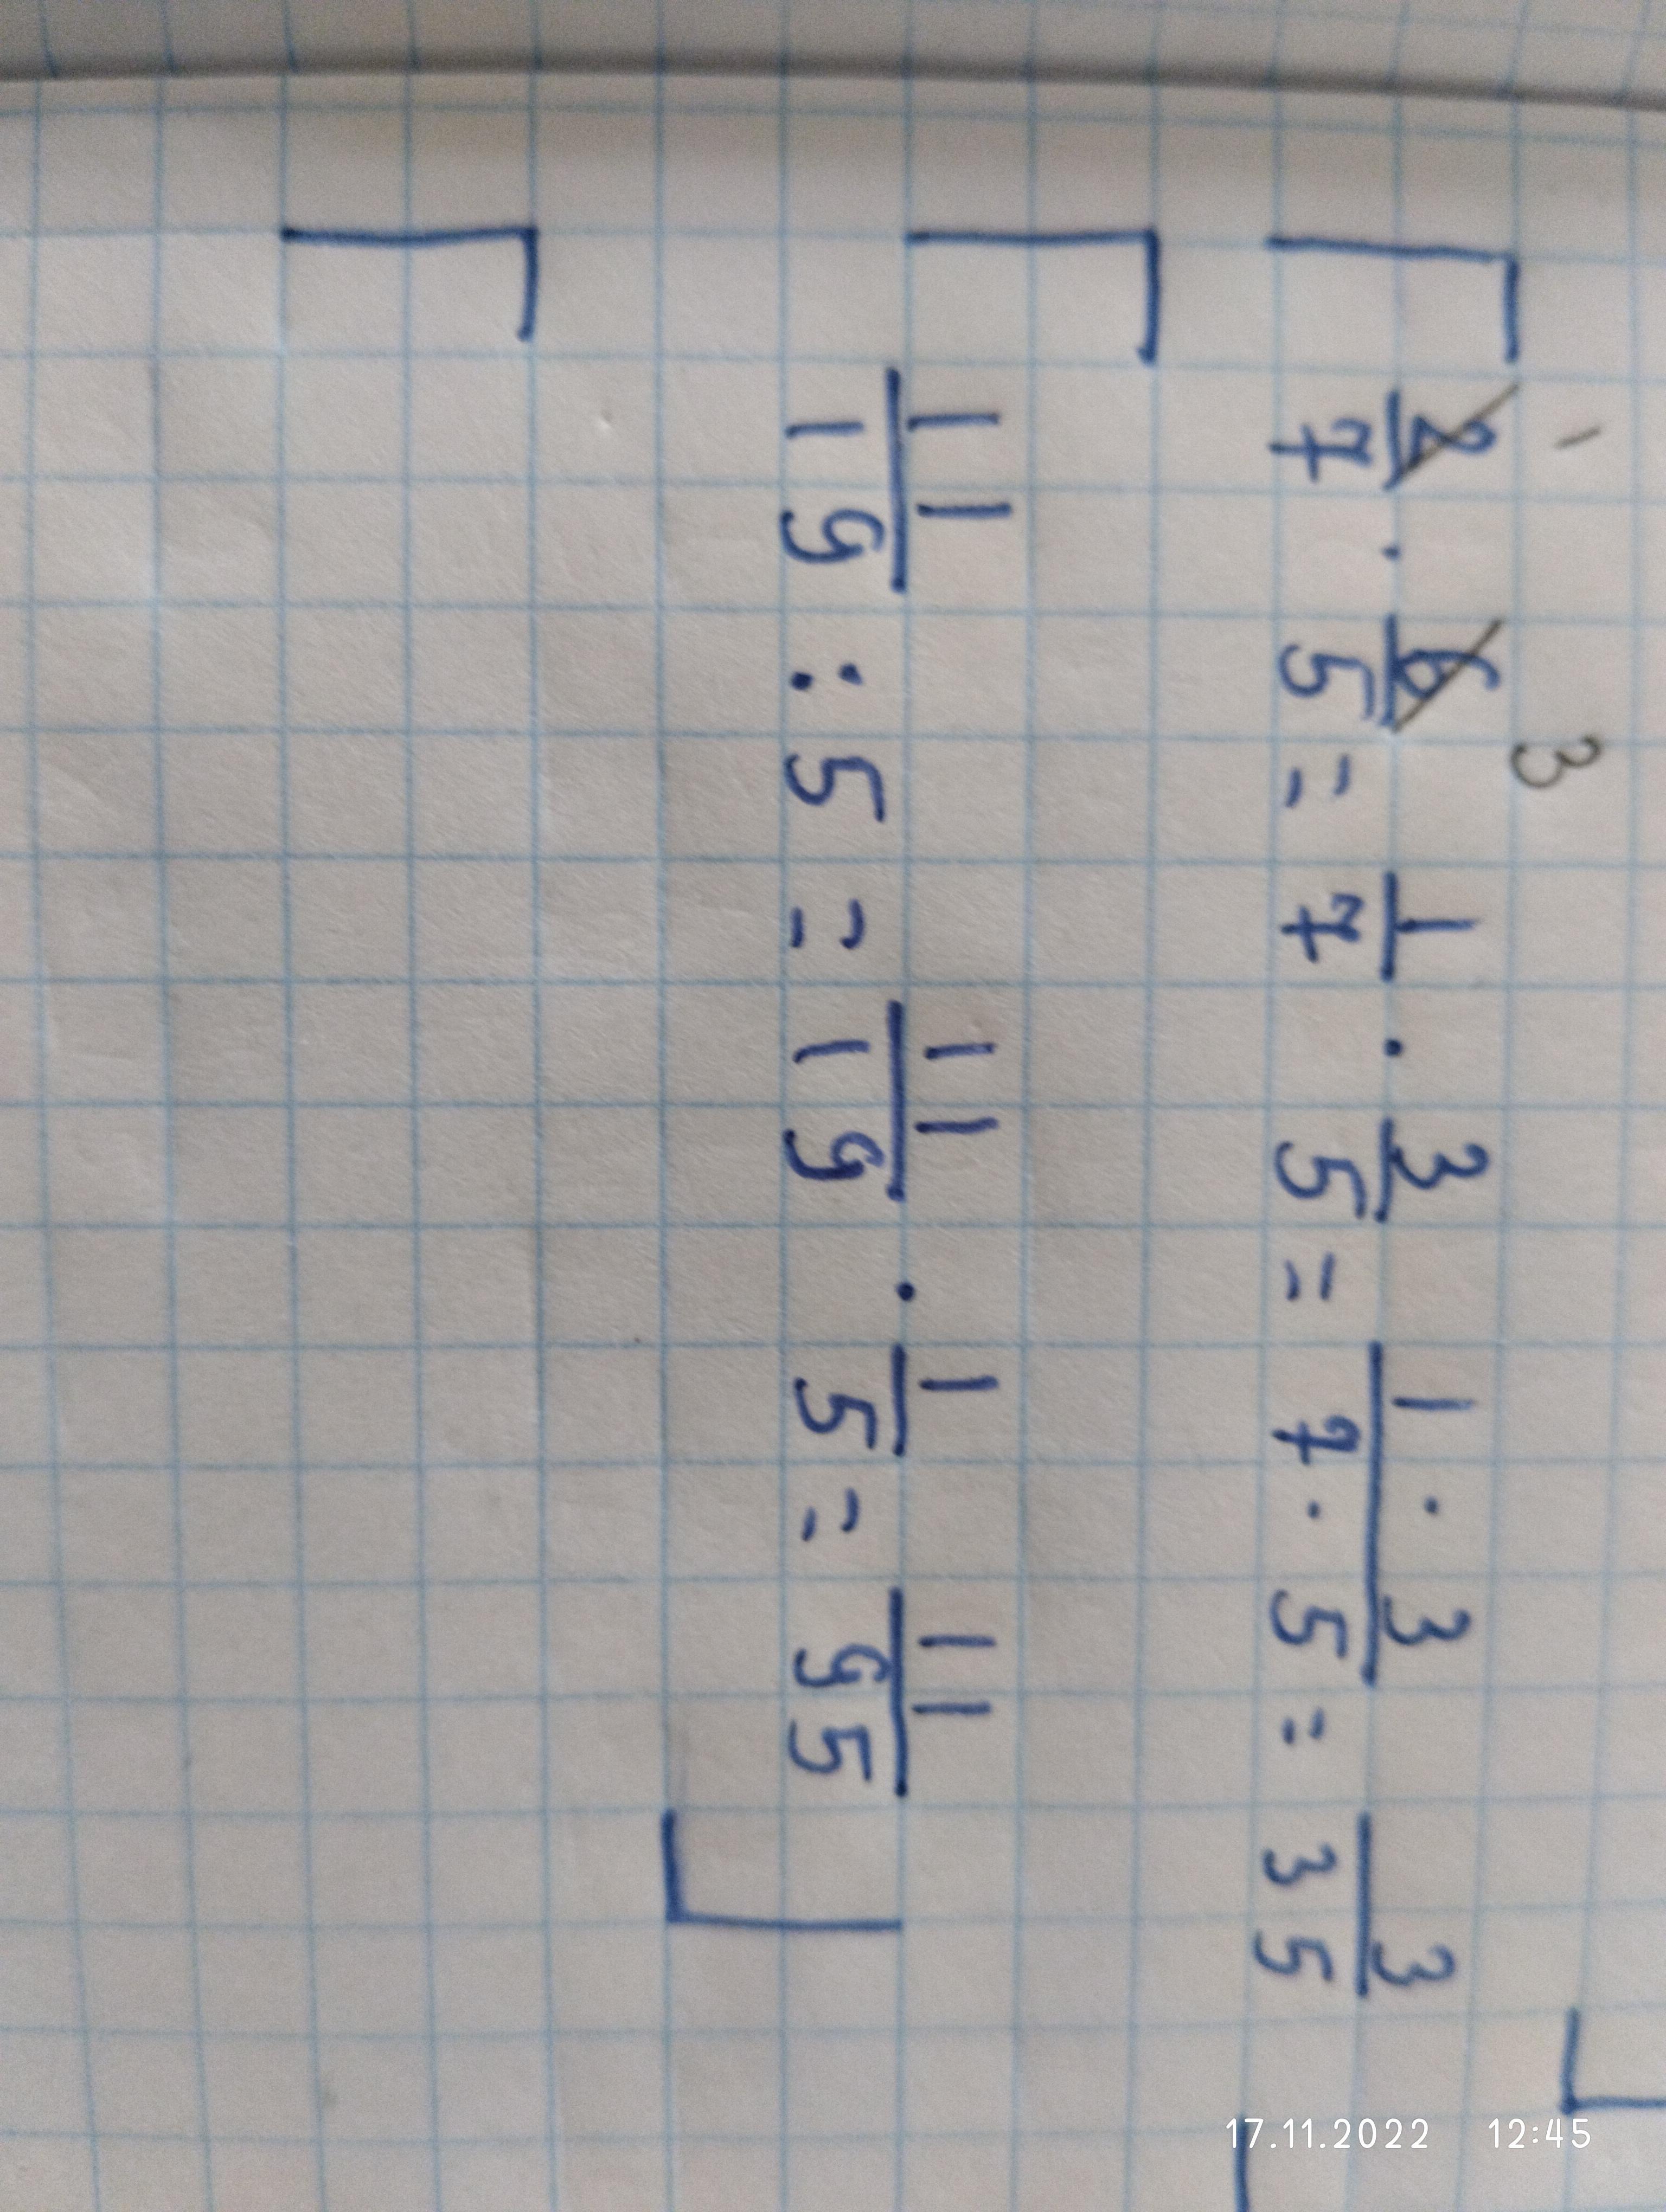 1 3
2/7 · 6/5 = 1/7 · 3/5 = 1 · 3 / 7 · 5 = 3/35
11/19 : 5 = 11/19 · 1/5 = 11/95
17.11.2022 12:45